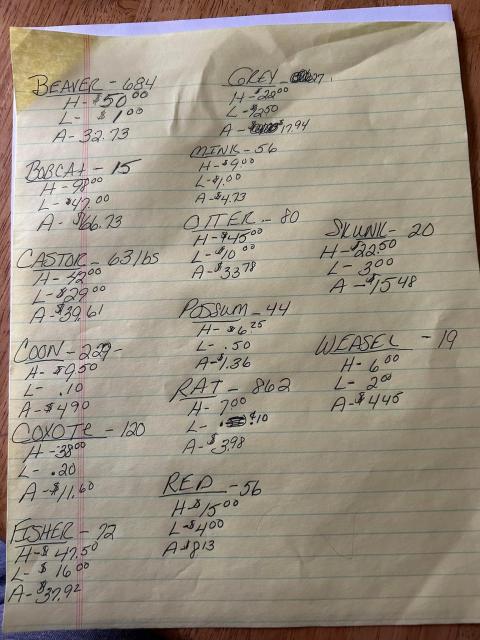 BEAVER - 684
H - $50.00
L - $1.00
A - 32.73
BOBCAT - 15
H - 98.00
L - $47.00
A - $66.73
CASTOR - 63 lbs
H - 42.00
L - $29.00
A - $39.61
COON - 229 -
H - $9.50
L - .10
A - $4.90
COYOTE - 120
H - 38.00
L - .20
A - $11.60
FISHER - 72
H - $47.50
L - $16.00
A - $37.92
GREY - 27
H - $22.00
L - $2.50
A - $17.94
MINK - 56
H - $9.00
L - $1.00
A - $4.73
OTTER - 80
H - $45.00
L - $10.00
A - $33.78
POSSUM - 44
H - $6.25
L - .50
A - 1.36
RAT - 862
H - 7.00
L - $.10
A - $3.98
RED - 56
H - $15.00
L - $4.00
A - $8.13
SKUNK - 20
H - $22.50
L - 3.00
A - $15.48
WEASEL - 19
H - 6.00
L - 2.00
A - $4.45